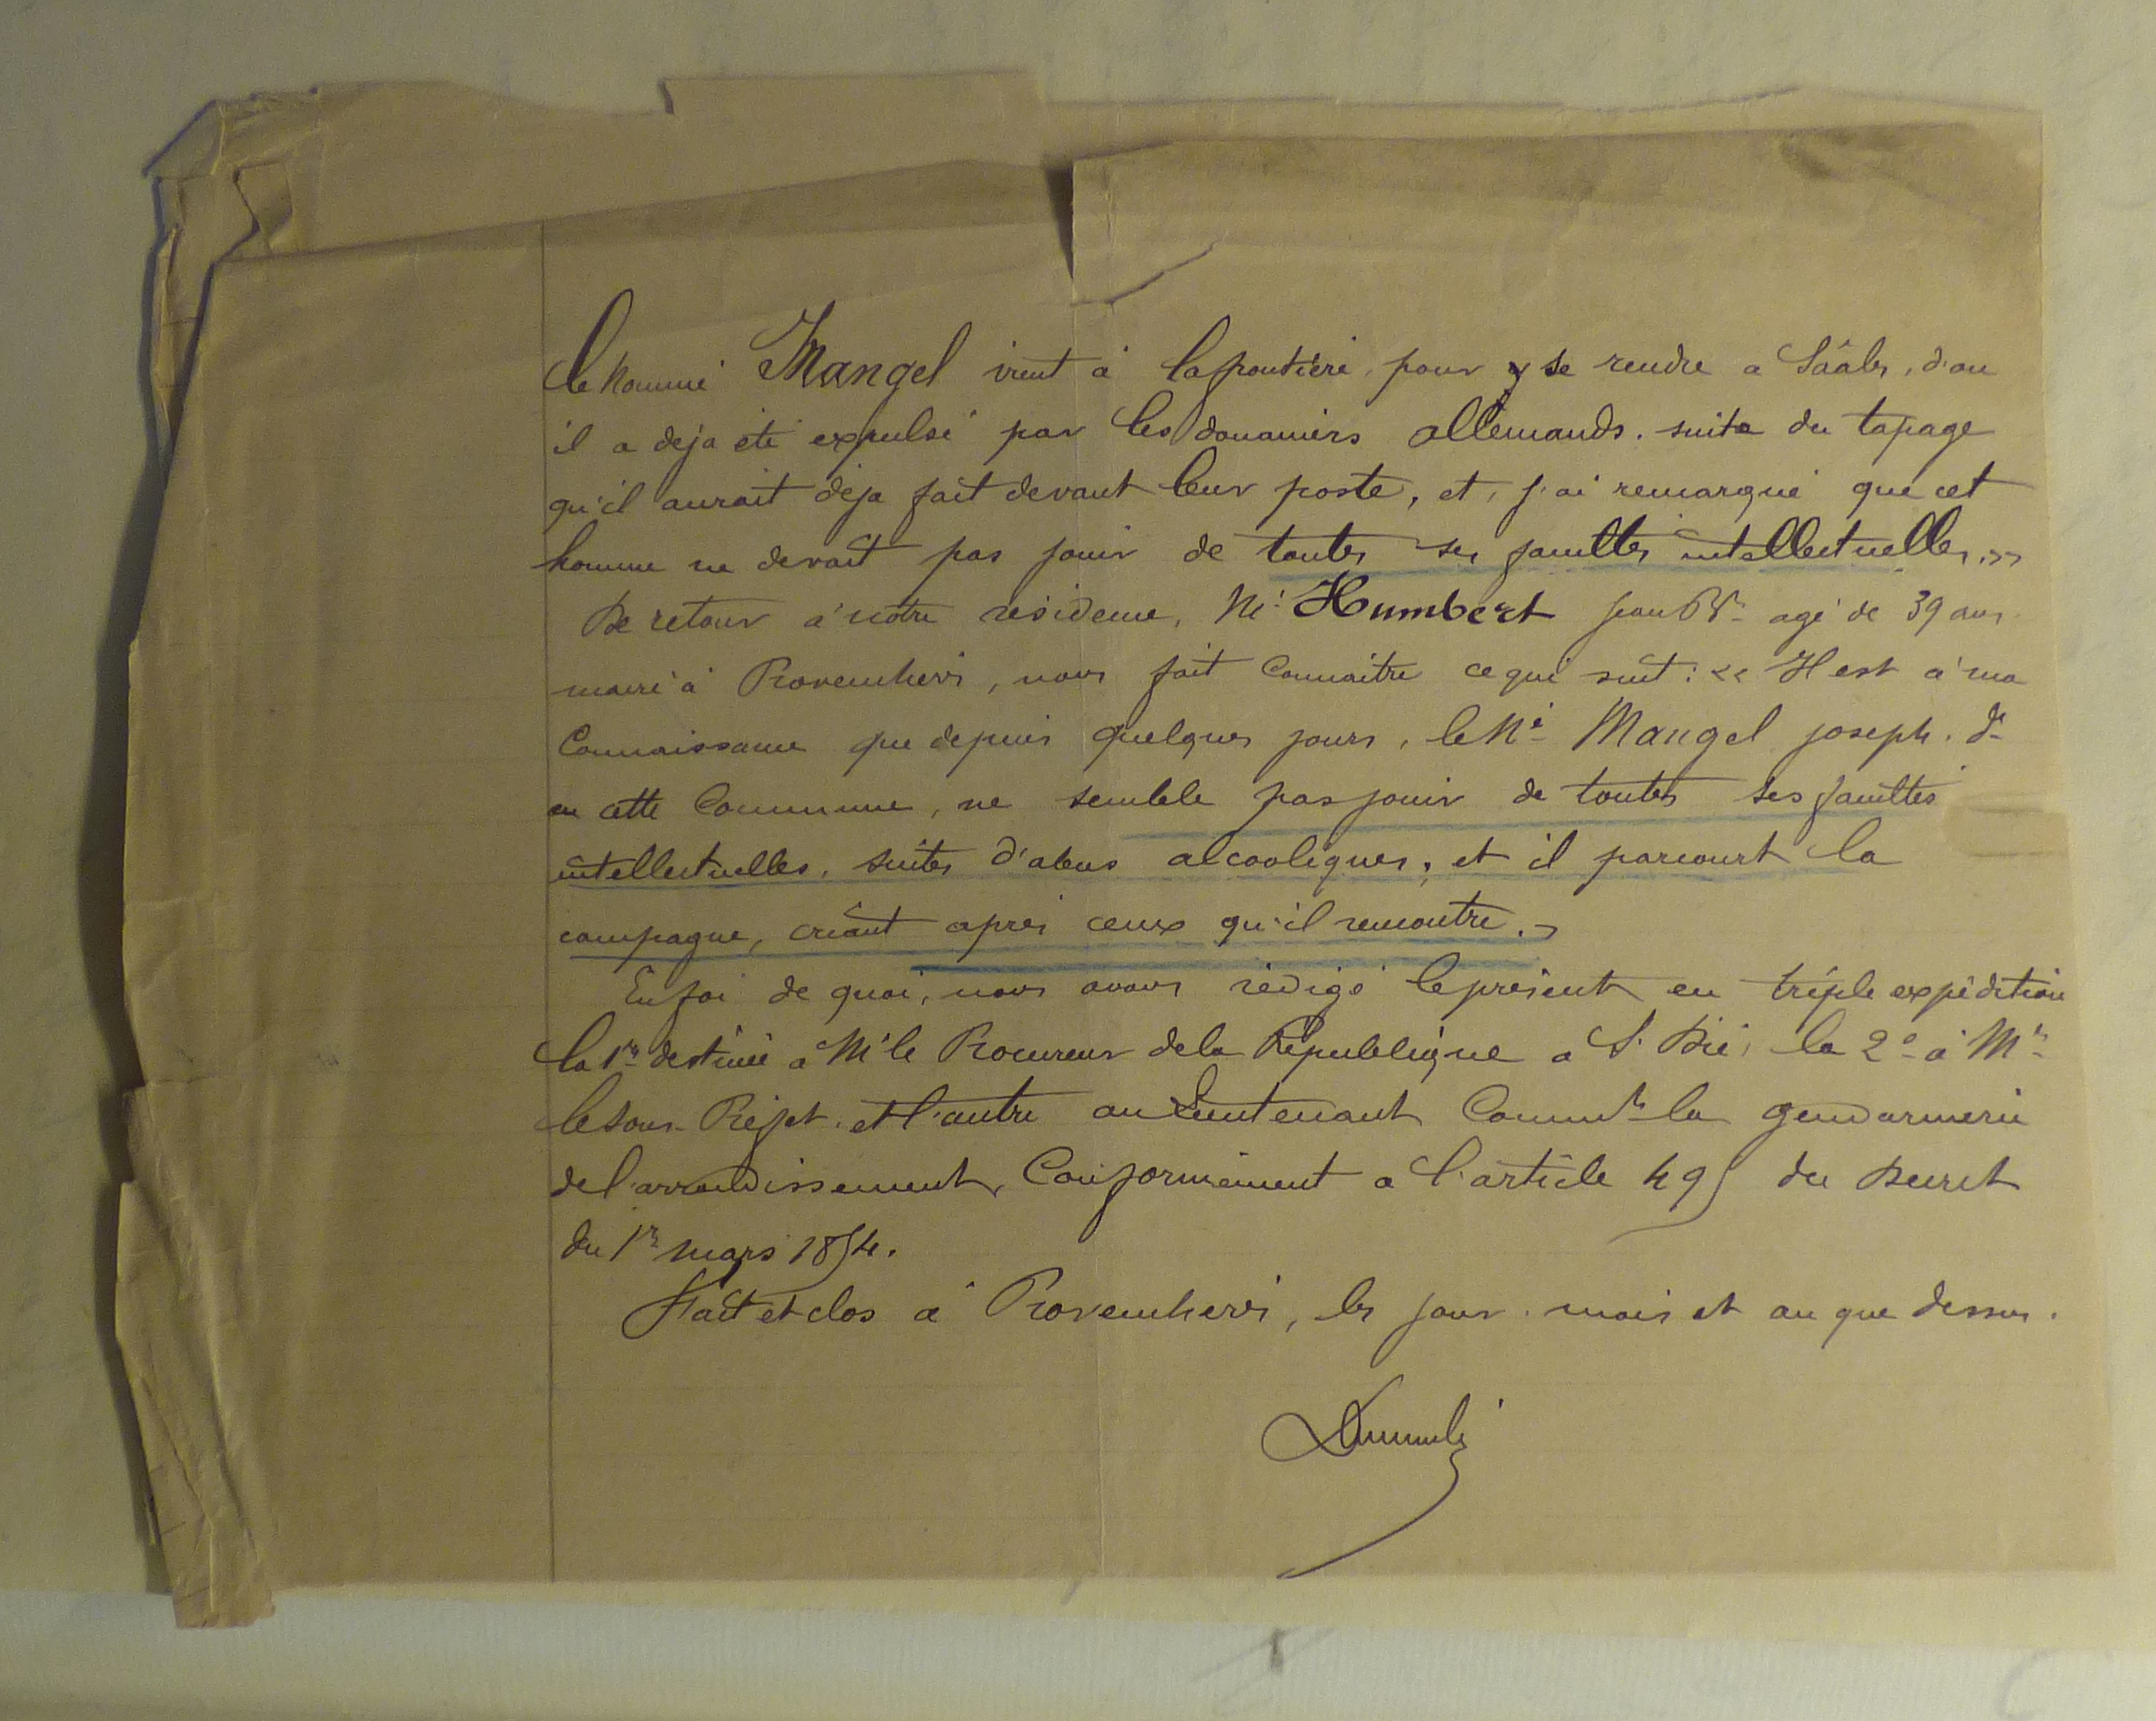 le nommé Mangel vient à la frontière, pour y se rendre a Sââles, d'ou
il a deja été expulsé par les douaniers allemands. suite du tapage
qu'il aurait déja fait devant leur poste, et, j'ai remarqué que cet
homme ne devait pas jouir de toutes ses facultés intellectuelles. »
De retour à notre résidence, Mr. Humbert Jean Bte agé de 39 ans
maire à Provenchères, nous fait connaître ce qui suit : « Il est à ma
Connaissance que depuis quelques jours, le Né Mangel joseph. dt
en cette Commune, ne semble pas jouir de toutes ses facultés
intellectuelles, suites d'abus alcooliques, et il parcourt la
campagne, criant après ceux qu'il rencontre. »
En foi de quoi, nous avons rédigé le présent en triple expédition
la 1re destinée à Mr le Procureur de la République a St. Dié, la 2e à Mr
le Sous-Préfet et l'autre au Lieutenant Commdt la gendarmerie
de l'arrondissement, Conformément a l'article 495 du Décret
du 1er mars 1854.
Fait et clos à Provenchères, les jour, mois et an que dessus.